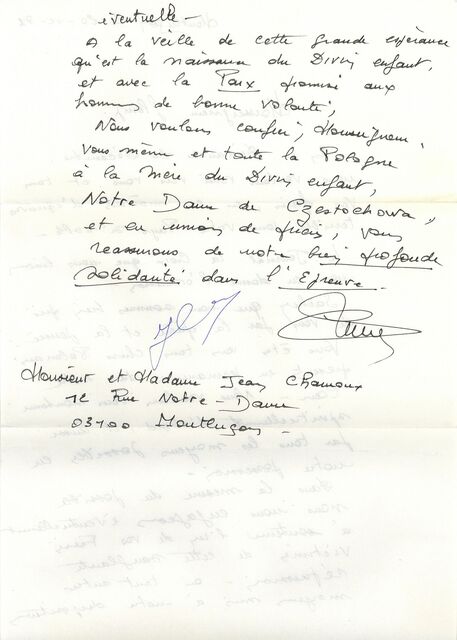 éventuelle -
A la veille de cette grande espérance
qu'est la naissance du Divin enfant,
et avec la Paix promise aux
hommes de bonne volonté,
Nous voulons confier, Monseigneur,
vous même et toute la Pologne
à la Mère du Divin enfant,
Notre Dame de Częstochowa,
et en union de prière, vous
reassurons de notre bien profonde
solidarité dans l'Epreuve.
Monsieur et Madame Jean Chamoux
12 Rue Notre-Dame
03100 Montluçon